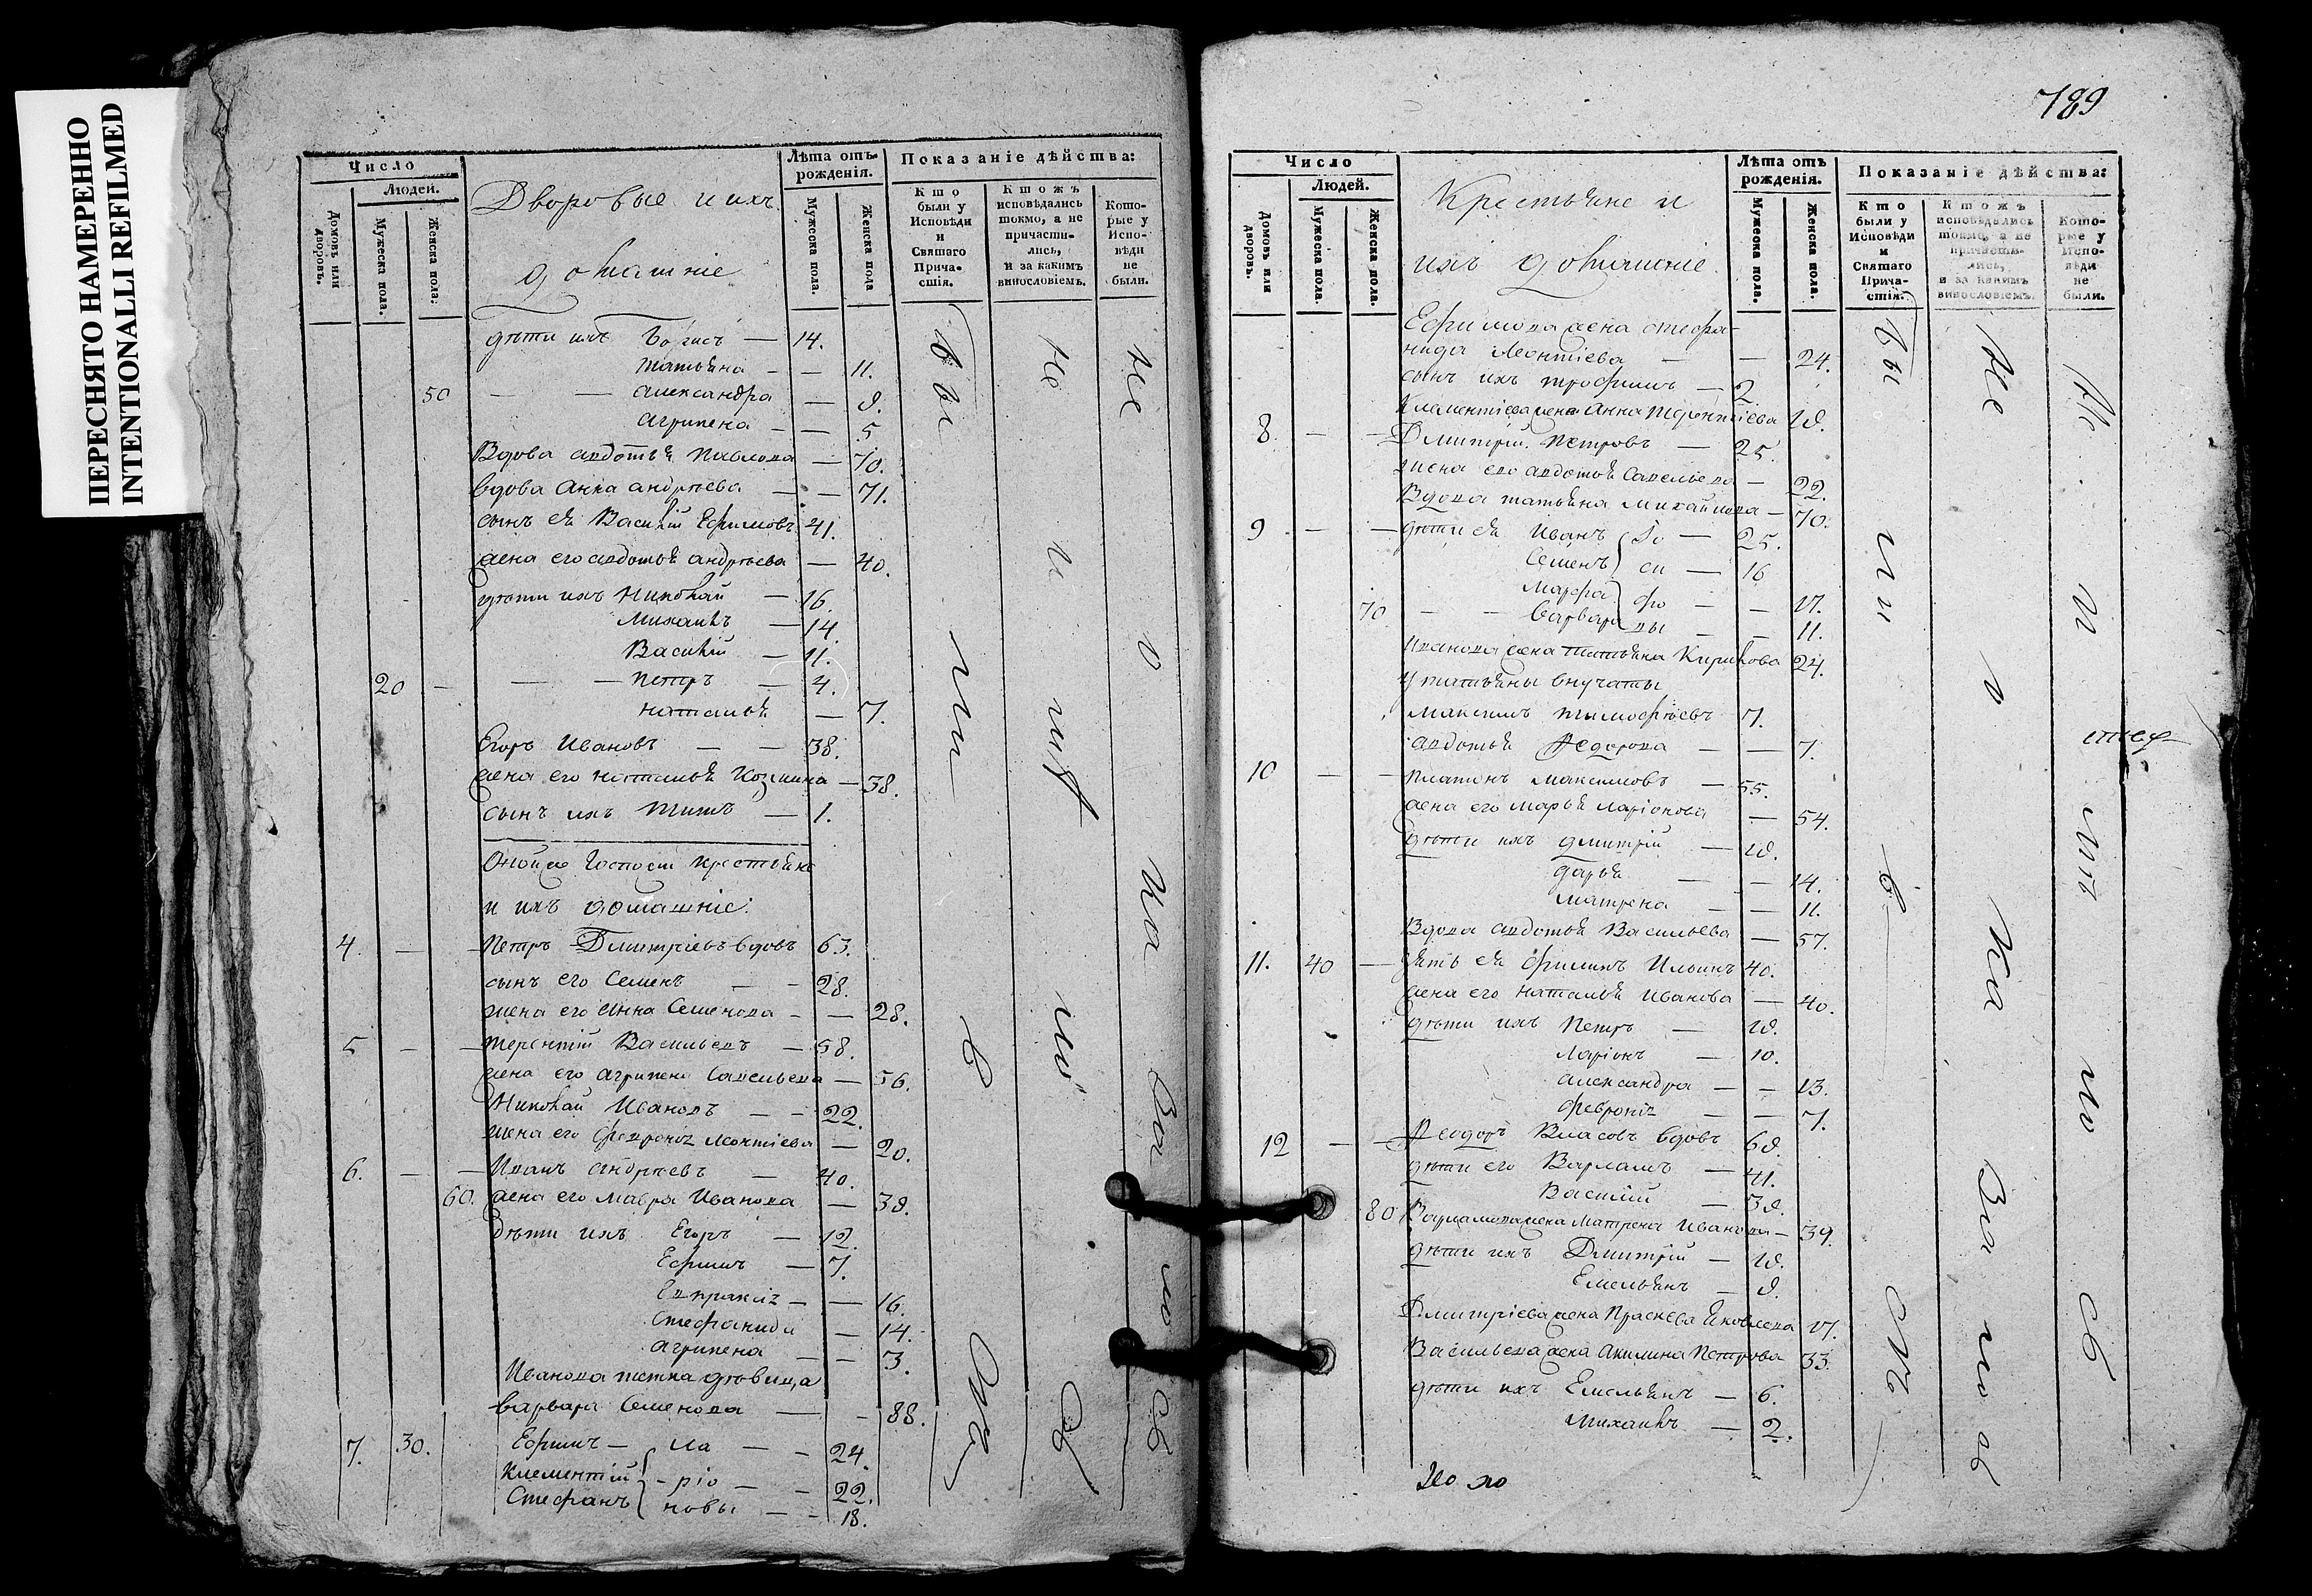 ПЕРЕСНЯТО НАМЕРЕННО
INTENTIONALLI REFILMED
Число
Людей.
Домовъ или дворовъ.
Мужеска пола.
Женска пола.
Дворовые и ихъ
домашніе
Лѣта отъ рожденія.
Мужеска пола.
Женска пола
Показаніе дѣйства:
Кто были у Исповѣди и Святаго Причастія.
Ктожъ исповѣдались токмо, а не причастились, и за какимъ винословіемъ.
Которые у Исповѣди не были.
дѣти ихъ Борисъ — 14.
татьяна — — 11.
50 — — александра — 9.
агрипена — — 5
Вдова авдотья Павлова — 70.
вдова Анна андрѣева — — 71.
сынъ ея Василій Ефимовъ 41.
жена его авдотья андрѣева — 40.
дѣти ихъ Николай — 16.
Михаилъ — 14.
Василій — 11.
20 — — Петръ — 4.
наталья — 7.
Егоръ Ивановъ — — 38.
жена его наталья Козмина — 38.
сынъ ихъ титъ — 1.
Оной же Госпожи крестьяне
и ихъ домашніе:
4. — — Петръ Дмитріевъ вдовъ 63.
сынъ его Семенъ — — 28.
жена его Анна Семенова — — 28.
5 — — терентій Васильевъ — 58.
жена его агрипена Савельева — 56.
Николай Ивановъ — — 22.
жена его Феврониа леонтіева — 20.
6. — — Иванъ андрѣевъ — 40.
60. жена его мавра Иванова — 39.
дѣти ихъ Егоръ — 12.
Ефимъ — 7.
Евпраксіа — — 16.
Стефанида — 14.
агрипена — — 3.
Иванова тетка дѣвица
варвара Семенова — — 88.
7. 30. Ефимъ — ла — — 24.
Клементій — ріо — — 22.
Стефанъ новы — — 18.
Бы ли в
Не и ma
Не
789
Число
Людей.
Домовъ или дворовъ.
Мужеска пола.
Женска пола.
Крестьяне и
ихъ домашніе.
Лѣта отъ рожденія.
Мужеска пола.
Женска пола.
Показаніе дѣйства:
Кто были у Исповѣди и Святаго Причастія.
Ктожъ исповѣдались токмо, а не причастились, и за какимъ винословіемъ.
Которые у Исповѣди не были.
Ефимова жена стефа-
нида Леонтіева — — 24.
сынъ ихъ трофимъ — 2.
Клементіева жена Анна терентіева 19.
8. — — Дмитрій Петровъ — 25.
жена его авдотья Савельева — 22.
Вдова татьяна михайлова — 70.
9 — — дѣти ея Иванъ Ѳо — 25.
Семенъ — 16
марфа — — 17.
70 — — варвара — — 11.
Иванова жена татьяна Кирилова 24.
у татьяны внучаты
максимъ тимофѣевъ 7.
авдотья Ѳедорова — — 7.
10 — — платонъ максимовъ — 55.
жена его марья ларіонова — 54.
дѣти ихъ дмитрій — 19.
дарья — — 14.
матрена — — 11.
Вдова авдотья Васильева — 57.
11. 40 — зять ея филипъ Ильинъ 40.
жена его наталья Иванова — 40.
дѣти ихъ Петръ — 19.
ларіонъ — 10.
александра — — 13.
Феврониа — — 7.
12 — — Ѳеодоръ Власовъ вдовъ 69.
дѣти его Варламъ — 41.
Василій — 39.
80 Варламова жена матрена Иванова — 39.
дѣти ихъ Дмитрій — 19.
Емельянъ — 9.
Дмитріева жена Прасковa Яковлева 17.
Васильева жена Акилина Петрова 33.
дѣти ихъ Емельянъ — 6.
михаилъ — 2.
Бы ли в
Не
Не